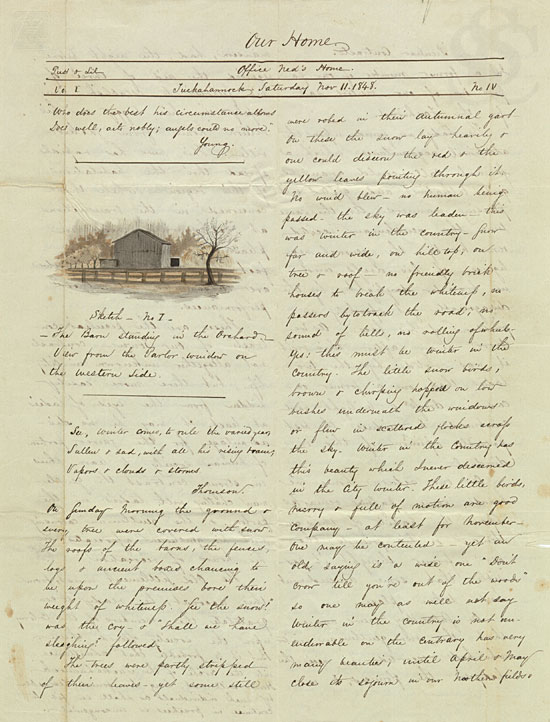 Our Home
Office Ned's Home.
Ned & Lil
Vol I
Tuckahannock, Saturday Nov 11. 1848.
No IV
"Who does the best his circumstance allows
Does well, acts nobly; angels could no more."
Young.
Sketch – No 7 –
– The Barn standing in the Orchard –
View from the Parlor window on
the western side.
"See, winter comes, to rule the varied year,
Sullen & sad, with all his rising train;
Vapors & clouds & storms
Thomson.
On Sunday Morning the ground &
every tree were covered with snow.
The roofs of the barns, the fences,
logs & ancient boxes chancing to
be upon the premises bore their
weight of whiteness. "See the snow!"
was the cry – & "Shall we have
sleighing" followed.
The trees were partly stripped
of their leaves – yet some still
were robed in their autumnal garb
On these the snow lay heavily &
one could discern the red & the
yellow leaves pointing through it.
No wind blew – no human being
passed – the sky was leaden – this
was winter in the country – snow
far and wide, on hill top, on
tree & roof – no friendly brick
houses to break the whiteness, no
passers by to track the road; no
sound of bells, no rolling of wheels
Yes: this must be winter in the
Country. The little snow birds,
brown & chirping hopped on low
bushes underneath the windows
or flew in scattered flocks across
the sky. Winter in the Country has
this beauty which I never discerned
in the City winter. These little birds,
merry & full of motion are good
company – at least for November –
One may be contented – yet an
old saying is a wise one "Don't
crow till you're out of the woods"
so one may as well not say
Winter in the country is not un-
endurable on the contrary has very
many beauties, until April & May
close its sojourn in our Northern fields &